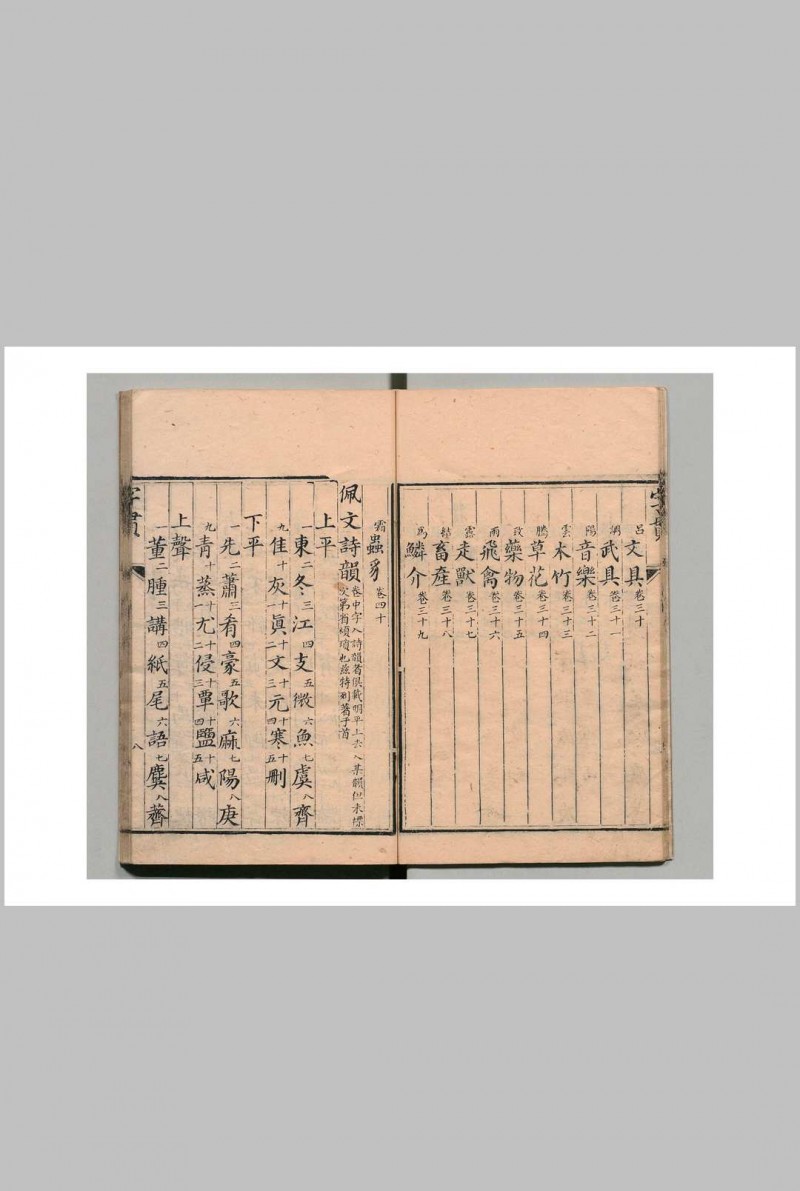 呂 文具 卷三十
調 武具 卷三十一
陽 音樂 卷三十二
雲 木竹 卷三十三
騰 草花 卷三十四
致 藥物 卷三十五
雨 飛禽 卷三十六
露 走獸 卷三十七
結 畜產 卷三十八
爲 鱗介 卷三十九
字貫
霜 蟲豸 卷四十
佩文詩韻 卷中字入詩韻者俱載明平上去入某韻但未標
次第者煩瑣也茲特刪著于首
上平
一東二冬三江四支五微六魚七虞八齊
九佳十灰十一眞十二文十三元十四寒十五刪
下平
一先二蕭三肴四豪五歌六麻七陽八庚
九青十蒸十一尤十二侵十三覃十四鹽十五咸
上聲
一董二腫三講四紙五尾六語七麌八薺
字貫
八